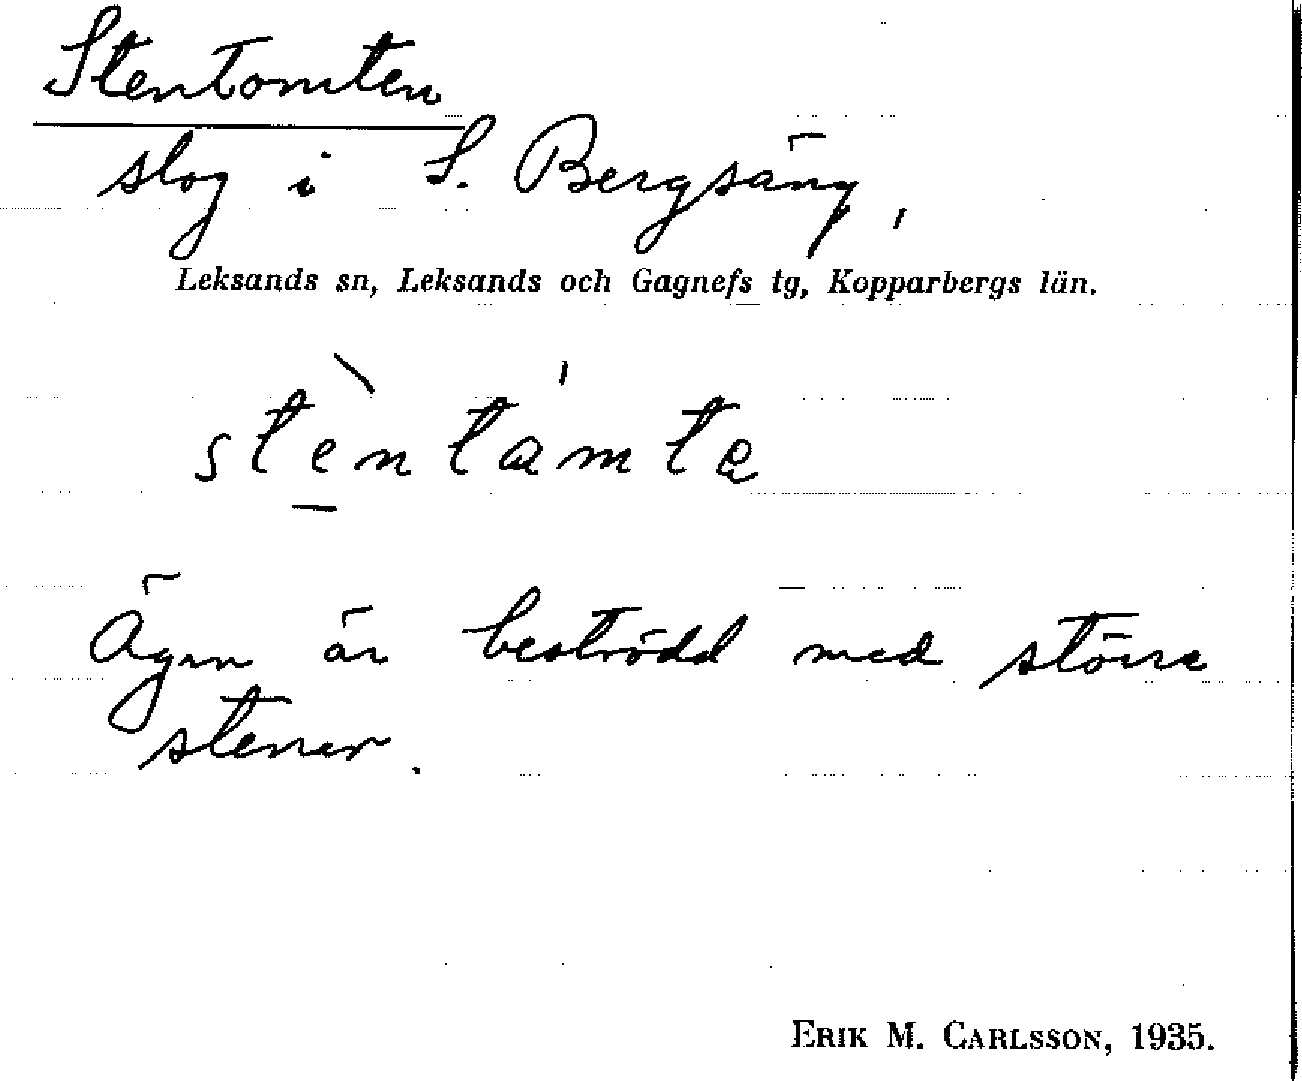 Stentomten
slog i S. Bergsäng,
Leksands sn, Leksands och Gagnefs tg, Kopparbergs län.
stèntámta
Ägen är beströdd med större
stenar.
ERIK M. CARLSSON, 1935.